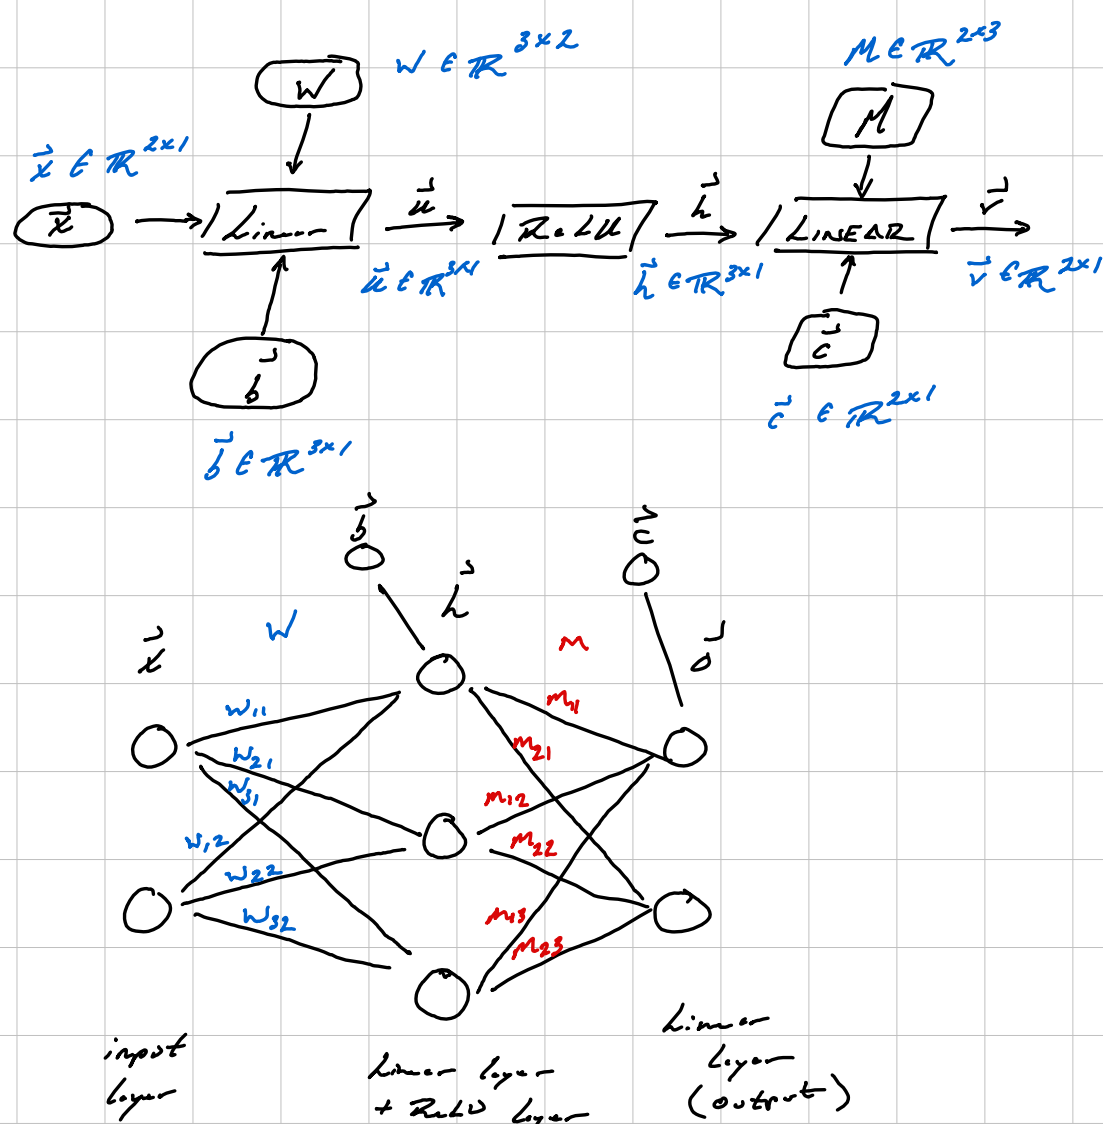 W ∈ ℝ^{3×2}
M ∈ ℝ^{2×3}
W
M
x⃗ ∈ ℝ^{2×1}
x⃗
Linear
u⃗
ReLU
h⃗
LINEAR
v⃗
u⃗ ∈ ℝ^{3×1}
h⃗ ∈ ℝ^{3×1}
v⃗ ∈ ℝ^{2×1}
b⃗
c⃗
b⃗ ∈ ℝ^{3×1}
c⃗ ∈ ℝ^{2×1}
b⃗
c⃗
h⃗
x⃗
W
M
o⃗
W₁₁
W₂₁
W₃₁
W₁₂
W₂₂
W₃₂
M₁₁
M₂₁
M₁₂
M₂₂
M₁₃
M₂₃
input
layer
Linear layer
+ ReLU layer
Linear
layer
(output)